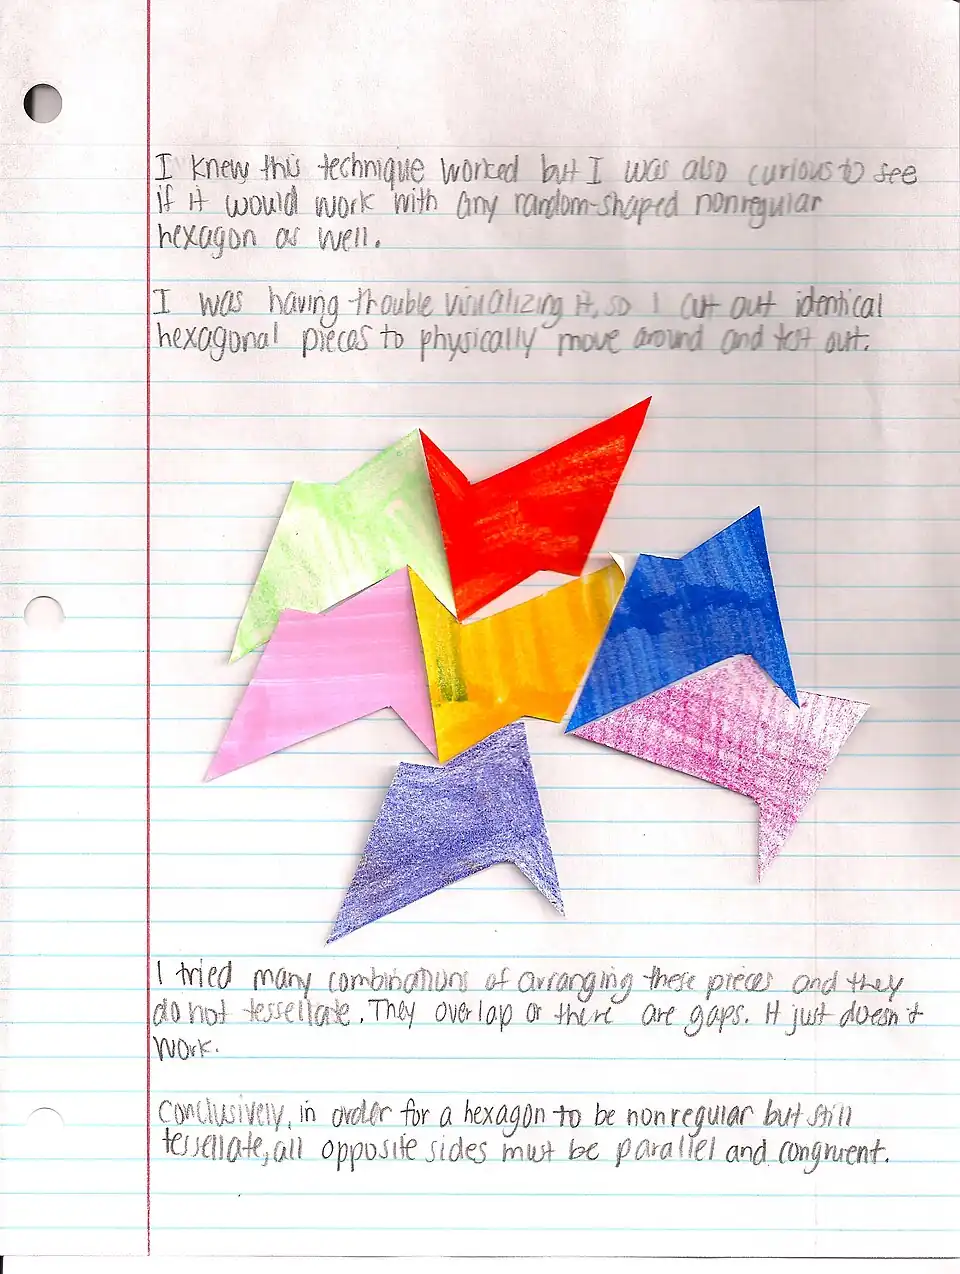 I knew this technique worked but I was also curious to see
if it would work with any random-shaped nonregular
hexagon as well.
I was having trouble visualizing it, so I cut out identical
hexagonal pieces to physically move around and test out.
I tried many combinations of arranging these pieces and they
do not tessellate. They overlap or there are gaps. It just doesn't
work.
Conclusively, in order for a hexagon to be nonregular but still
tessellate, all opposite sides must be parallel and congruent.